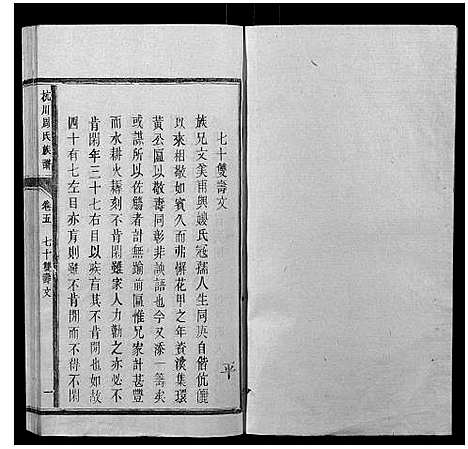 七十雙壽文
族兄文美甫與嫂氏冠孺人生同庚自偕伉儷
以來相敬如賓久而弗懈花甲之年資溪集環
黃公匾以敬壽同彰非諛語也今又添一壽矣
或謀所以佐觴者計無踰前匾惟兄家計甚豐
而水耕火耨刻不肯閒雖家人力勸之亦必不
肯閒年三十七右目以疾盲其不肯閒也如故
四十有七左目亦盲則雖不肯閒而不得不閒
平
杭川周氏族譜
卷五
七十雙壽文
一